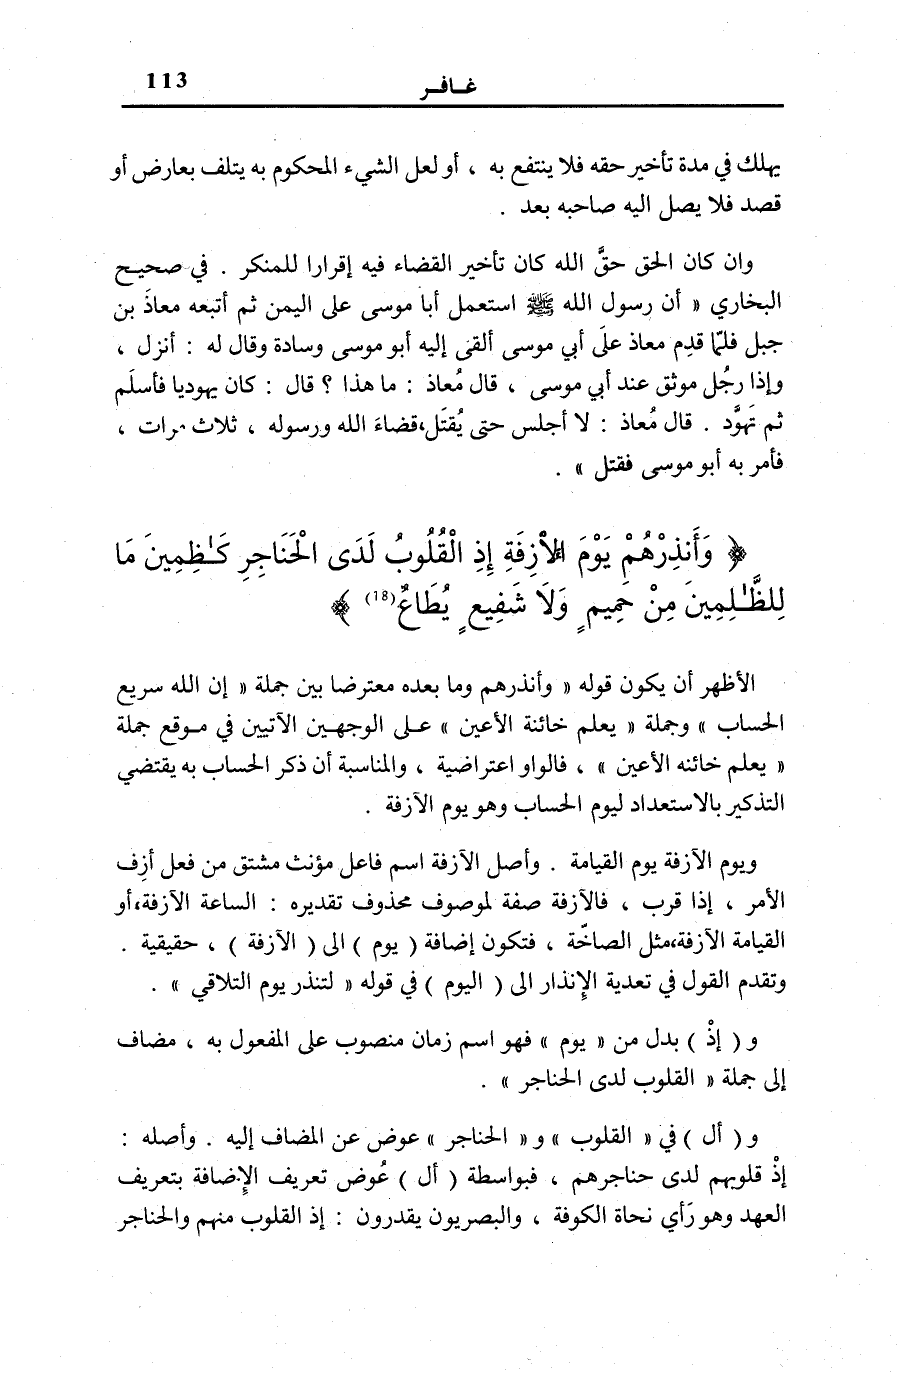 غـافـر 113
يهلك في مدة تأخير حقه فلا ينتفع به ، أو لعل الشيء المحكوم به يتلف بعارض أو
قصد فلا يصل اليه صاحبه بعد .
وان كان الحق حقَّ الله كان تأخير القضاء فيه إقرارا للمنكر . في صحيح
البخاري « أن رسول الله ﷺ استعمل أبا موسى على اليمن ثم أتبعه معاذَ بن
جبل فلمّا قدِم معاذ علَى أبي موسى ألقى إليه أبو موسى وسادة وقال له : أنزل ،
وإذا رجُل موثق عند أبي موسى ، قال مُعاذ : ما هذا ؟ قال : كان يهوديا فأسلَم
ثم تهوَّد . قال مُعاذ : لا أجلس حتى يُقتَل،قضاءَ الله ورسوله ، ثلاث مرات ،
فأمر به أبو موسى فقتل » .
﴿ وَأَنذِرْهُمْ يَوْمَ الْأَزِفَةِ إِذِ الْقُلُوبُ لَدَى الْحَنَاجِرِ كَـٰظِمِينَ مَا
لِلظَّـٰلِمِينَ مِنْ حَمِيمٍ وَلَا شَفِيعٍ يُطَاعُ (18) ﴾
الأظهر أن يكون قوله « وأنذرهم وما بعده معترضا بين جملة « إن الله سريع
الحساب » وجملة « يعلم خائنة الأعين » عـلى الوجهـين الآتيين في مـوقع جملة
« يعلم خائنه الأعين » ، فالواو اعتراضية ، والمناسبة أن ذكر الحساب به يقتضي
التذكير بالاستعداد ليوم الحساب وهو يوم الآزفة .
ويوم الآزفة يوم القيامة . وأصل الآزفة اسم فاعل مؤنث مشتق من فعل أزِف
الأمر ، إذا قرب ، فالآزفة صفة لموصوف محذوف تقديره : الساعة الآزفة،أو
القيامة الآزفة،مثل الصاخّة ، فتكون إضافة ( يوم ) الى ( الآزفة ) ، حقيقية .
وتقدم القول في تعدية الإِنذار الى ( اليوم ) في قوله « لتنذر يوم التلاقي » .
و ( إذْ ) بدل من « يوم » فهو اسم زمان منصوب على المفعول به ، مضاف
إلى جملة « القلوب لدى الحناجر » .
و ( أل ) في « القلوب » و « الحناجر » عوض عن المضاف إليه . وأصله :
إذْ قلوبهم لدى حناجرهم ، فبواسطة ( أل ) عُوض تعريف الإِضافة بتعريف
العهد وهو رَأي نحاة الكوفة ، والبصريون يقدرون : إذ القلوب منهم والحناجر